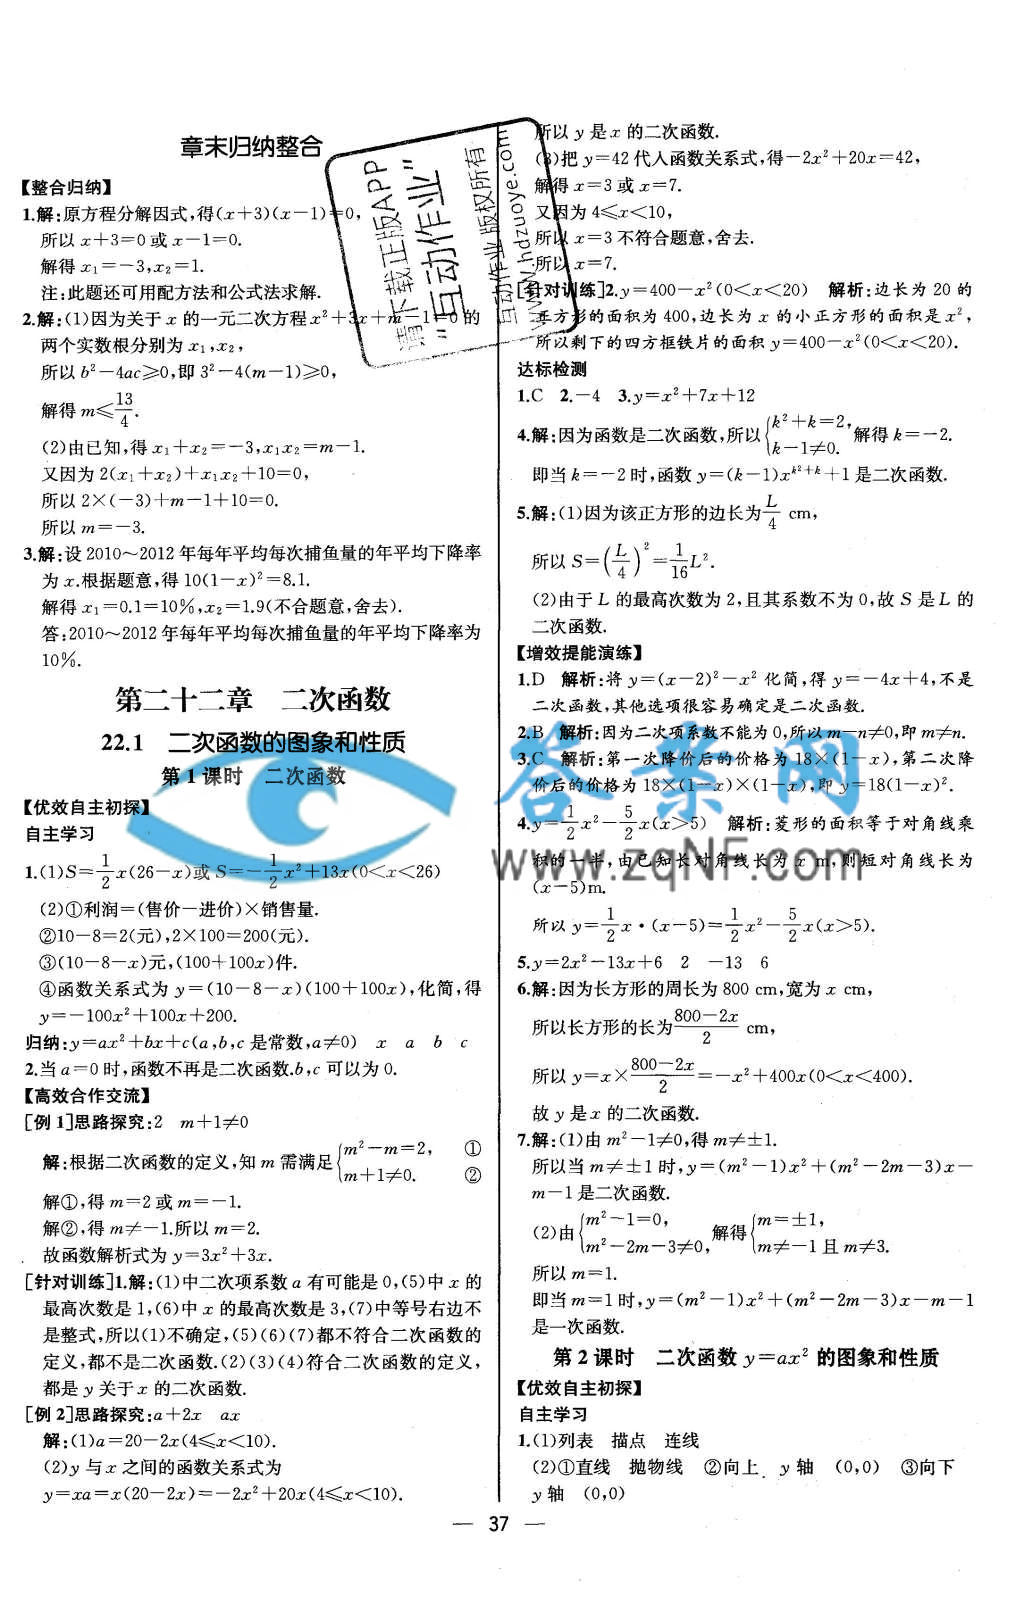 章末归纳整合
【整合归纳】
1.解:原方程分解因式,得(x+3)(x-1)=0,
所以 x+3=0 或 x-1=0.
解得 x₁=-3,x₂=1.
注:此题还可用配方法和公式法求解.
2.解:(1)因为关于 x 的一元二次方程 x²+3x+m-1=0 的
两个实数根分别为 x₁,x₂,
所以 b²-4ac≥0,即 3²-4(m-1)≥0,
解得 m≤13/4.
(2)由已知,得 x₁+x₂=-3,x₁x₂=m-1.
又因为 2(x₁+x₂)+x₁x₂+10=0,
所以 2×(-3)+m-1+10=0.
所以 m=-3.
3.解:设 2010~2012 年每年平均每次捕鱼量的年平均下降率
为 x.根据题意,得 10(1-x)²=8.1.
解得 x₁=0.1=10%,x₂=1.9(不合题意,舍去).
答:2010~2012 年每年平均每次捕鱼量的年平均下降率为
10%.
第二十二章 二次函数
22.1 二次函数的图象和性质
第 1 课时 二次函数
【优效自主初探】
自主学习
1.(1)S=1/2x(26-x)或 S=-1/2x²+13x(0<x<26)
(2)①利润=(售价-进价)×销售量.
②10-8=2(元),2×100=200(元).
③(10-8-x)元,(100+100x)件.
④函数关系式为 y=(10-8-x)(100+100x),化简,得
y=-100x²+100x+200.
归纳:y=ax²+bx+c(a,b,c 是常数,a≠0) x a b c
2.当 a=0 时,函数不再是二次函数.b,c 可以为 0.
【高效合作交流】
[例 1]思路探究:2 m+1≠0
解:根据二次函数的定义,知 m 需满足{m²-m=2, ①
m+1≠0. ②
解①,得 m=2 或 m=-1.
解②,得 m≠-1.所以 m=2.
故函数解析式为 y=3x²+3x.
[针对训练]1.解:(1)中二次项系数 a 有可能是 0,(5)中 x 的
最高次数是 1,(6)中 x 的最高次数是 3,(7)中等号右边不
是整式,所以(1)不确定,(5)(6)(7)都不符合二次函数的
定义,都不是二次函数.(2)(3)(4)符合二次函数的定义,
都是 y 关于 x 的二次函数.
[例 2]思路探究:a+2x ax
解:(1)a=20-2x(4≤x<10).
(2)y 与 x 之间的函数关系式为
y=xa=x(20-2x)=-2x²+20x(4≤x<10).
所以 y 是 x 的二次函数.
(3)把 y=42 代入函数关系式,得-2x²+20x=42,
解得 x=3 或 x=7.
又因为 4≤x<10,
所以 x=3 不符合题意,舍去.
所以 x=7.
[针对训练]2.y=400-x²(0<x<20) 解析:边长为 20 的
正方形的面积为 400,边长为 x 的小正方形的面积是 x²,
所以剩下的四方框铁片的面积 y=400-x²(0<x<20).
达标检测
1.C 2.-4 3.y=x²+7x+12
4.解:因为函数是二次函数,所以{k²+k=2, k-1≠0. 解得 k=-2.
即当 k=-2 时,函数 y=(k-1)x^(k²+k)+1 是二次函数.
5.解:(1)因为该正方形的边长为 L/4 cm,
所以 S=(L/4)²=1/16L².
(2)由于 L 的最高次数为 2,且其系数不为 0,故 S 是 L 的
二次函数.
【增效提能演练】
1.D 解析:将 y=(x-2)²-x² 化简,得 y=-4x+4,不是
二次函数,其他选项很容易确定是二次函数.
2.B 解析:因为二次项系数不能为 0,所以 m-n≠0,即 m≠n.
3.C 解析:第一次降价后的价格为 18×(1-x),第二次降
价后的价格为 18×(1-x)×(1-x),即 y=18(1-x)².
4.y=1/2x²-5/2x(x>5) 解析:菱形的面积等于对角线乘
积的一半,由已知长对角线长为 x m,则短对角线长为
(x-5)m.
所以 y=1/2x·(x-5)=1/2x²-5/2x(x>5).
5.y=2x²-13x+6 2 -13 6
6.解:因为长方形的周长为 800 cm,宽为 x cm,
所以长方形的长为 (800-2x)/2 cm,
所以 y=x×(800-2x)/2=-x²+400x(0<x<400).
故 y 是 x 的二次函数.
7.解:(1)由 m²-1≠0,得 m≠±1.
所以当 m≠±1 时,y=(m²-1)x²+(m²-2m-3)x-
m-1 是二次函数.
(2)由{m²-1=0, m²-2m-3≠0, 解得{m=±1, m≠-1 且 m≠3.
所以 m=1.
即当 m=1 时,y=(m²-1)x²+(m²-2m-3)x-m-1
是一次函数.
第 2 课时 二次函数 y=ax² 的图象和性质
【优效自主初探】
自主学习
1.(1)列表 描点 连线
(2)①直线 抛物线 ②向上 y 轴 (0,0) ③向下
y 轴 (0,0)
— 37 —
请下载正版APP
“互动作业”
互动作业 版权所有
www.hdzuoye.com
答案网
www.zqNF.com